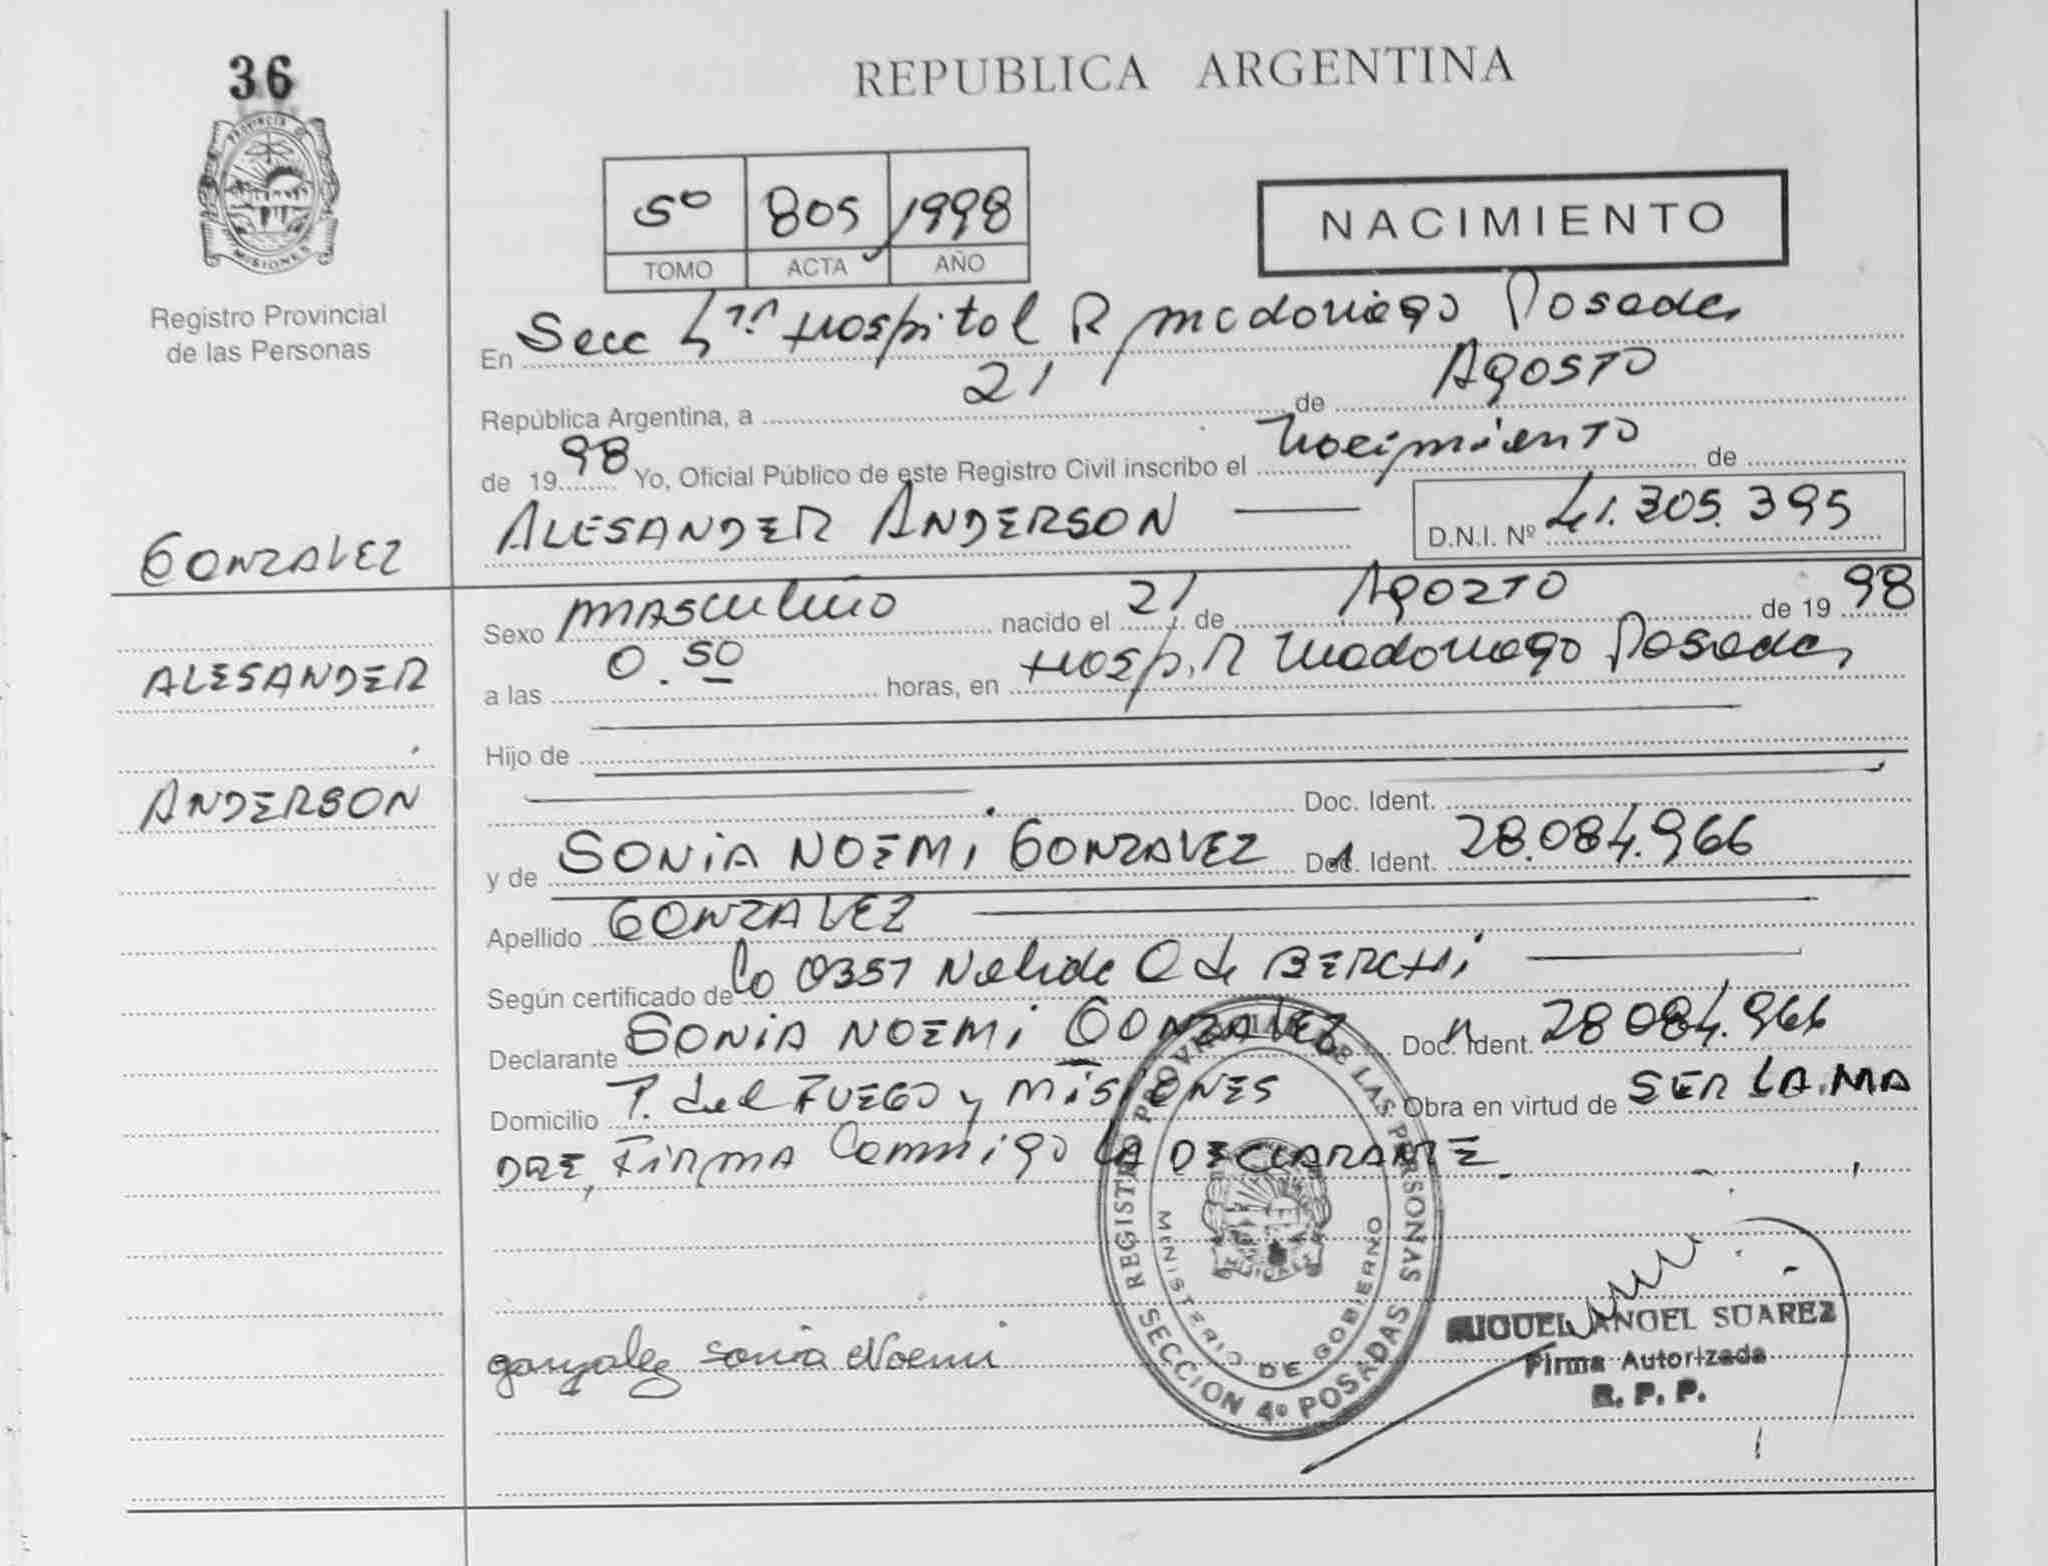 36
REPUBLICA ARGENTINA
PROVINCIA DE
MISIONES
Registro Provincial
de las Personas
5º 805 1998
TOMO ACTA AÑO
NACIMIENTO
En Secc 4ta Hospital R madariaga Posadas
República Argentina, a 21 de Agosto
de 1998 Yo, Oficial Público de este Registro Civil inscribo el nacimiento de
GONZALEZ
ALESANDER ANDERSON D.N.I. Nº 41.305.395
Sexo masculino nacido el 21 de Agozto de 1998
ALESANDER
a las 0.50 horas, en Hosp. R madariaga Posadas
Hijo de
ANDERSON
Doc. Ident.
y de SONIA NOEMI GONZALEZ Doc. Ident. 28.084.966
Apellido GONZALEZ
Según certificado de 0357 Nelide O de BERCHI
Declarante SONIA NOEMI GONZALEZ Doc. Ident. 28084.966
Domicilio T. del FUEGO y MISIONES Obra en virtud de SER LA MA
DRE, FIRMA Conmigo LA DECLARANTE.
REGISTRO PROVINCIAL DE LAS PERSONAS
MINISTERIO DE GOBIERNO
SECCION 4º POSADAS
MISIONES
gonzalez sonia Noemi
MIGUEL ANGEL SUAREZ
Firma Autorizada
R. P. P.